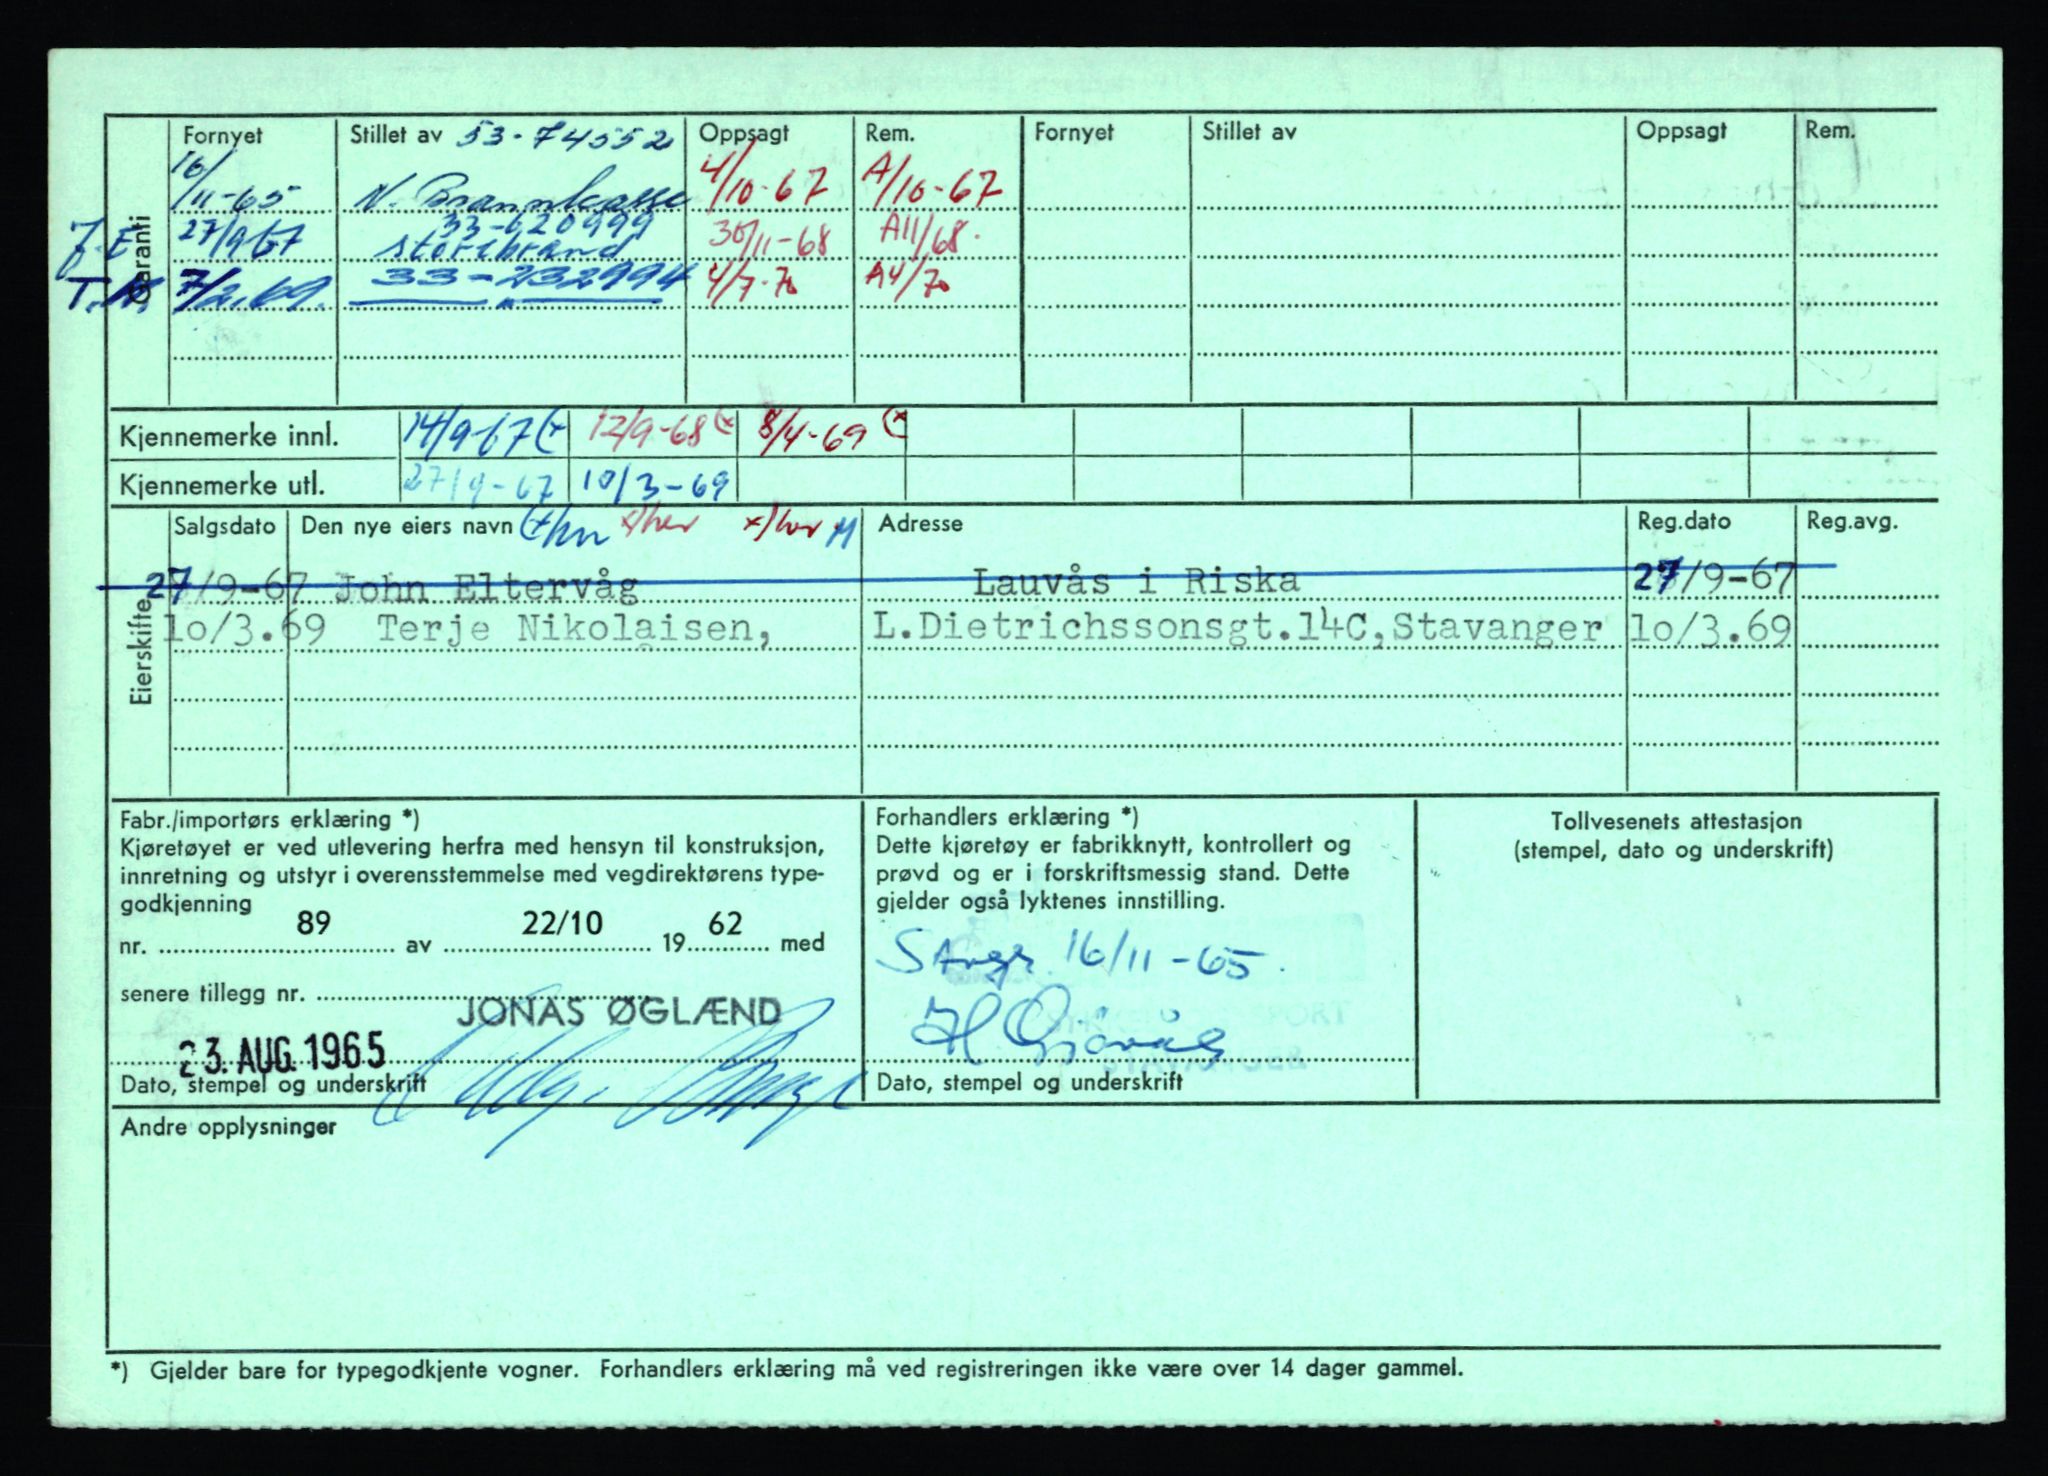 Garanti
Fornyet Stillet av 53-74552 Oppsagt Rem. Fornyet Stillet av Oppsagt Rem.
16/11-65 N. Brannkasse 4/10-67 A/10-67
33-620999
J.E 27/9-67 Storebrand 30/11-68 A11/68.
T.N. 7/2.69. 33-232994 4/7-70 A4/70
Kjennemerke innl. 14/9-67 (x 12/9-68 (x 8/4-69 (x
Kjennemerke utl. 27/9-67 10/3-69
Eierskifte
Salgsdato Den nye eiers navn (x/hn x/her x/her M Adresse Reg.dato Reg.avg.
27/9-67 John Eltervåg Lauvås i Riska 27/9-67
10/3.69 Terje Nikolaisen, L.Dietrichssonsgt.14C,Stavanger 10/3.69
Fabr./importørs erklæring *)
Kjøretøyet er ved utlevering herfra med hensyn til konstruksjon,
innretning og utstyr i overensstemmelse med vegdirektørens type-
godkjenning
nr. 89 av 22/10 19 62 med
senere tillegg nr.
JONAS ØGLÆND
23. AUG. 1965
Dato, stempel og underskrift
Forhandlers erklæring *)
Dette kjøretøy er fabrikknytt, kontrollert og
prøvd og er i forskriftsmessig stand. Dette
gjelder også lyktenes innstilling.
Svgr. 16/11-65.
H Gjøvåg
Dato, stempel og underskrift
Tollvesenets attestasjon
(stempel, dato og underskrift)
Andre opplysninger
*) Gjelder bare for typegodkjente vogner. Forhandlers erklæring må ved registreringen ikke være over 14 dager gammel.